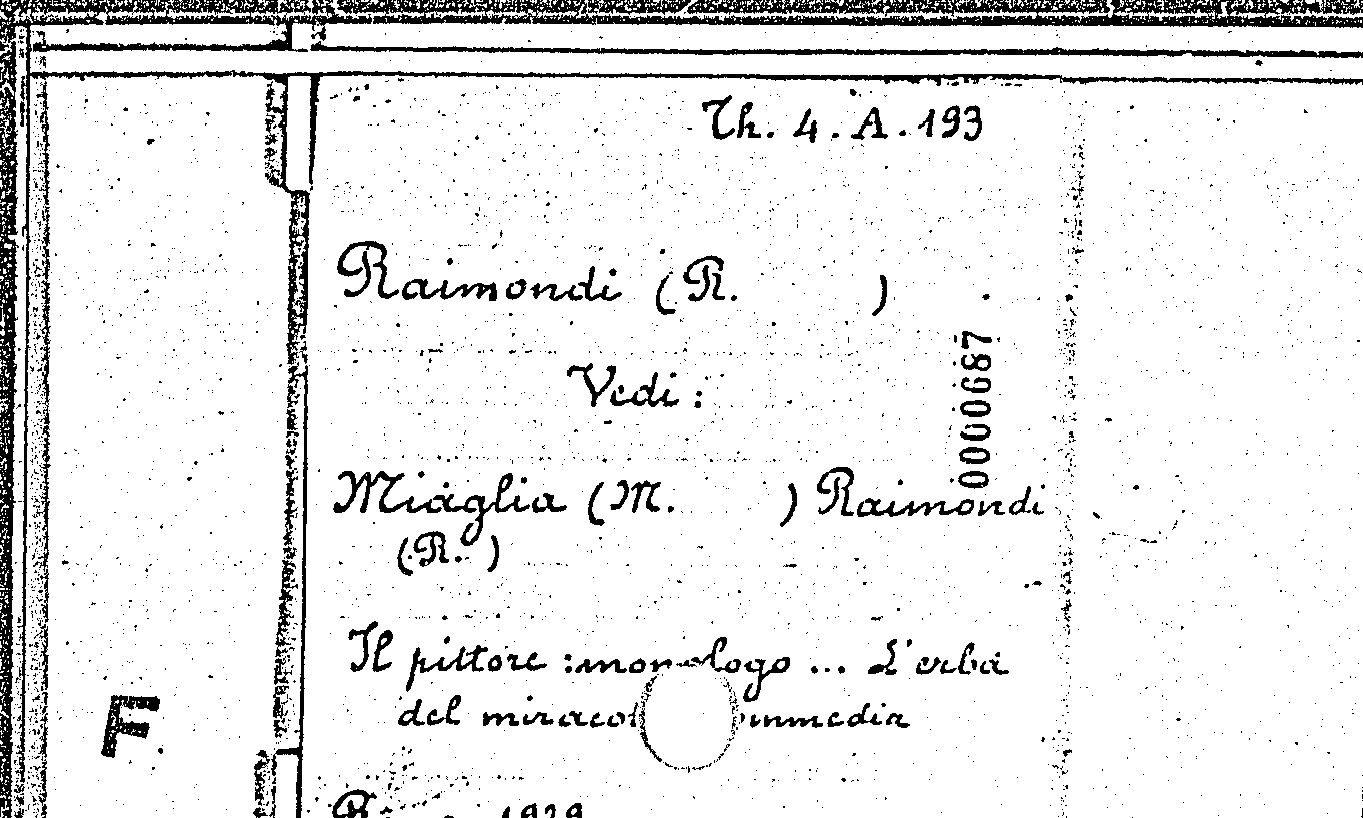 Th. 4. A. 193
Raimondi (R. )
Vedi :
0000687
Miaglia (M. ) Raimondi
(R. )
Il pittore : monologo ... L'erba
del
F.
1929